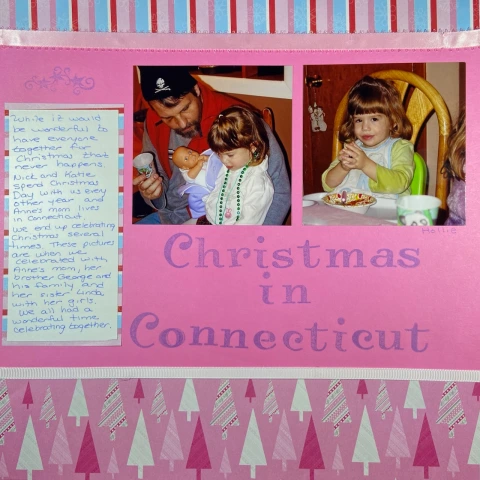 While it would
be wonderful to
have everyone
together for
Christmas that
never happens.
Nick and Katie
spend Christmas
Day with us every
other year and
Anne's mom lives
in Connecticut.
We end up celebrating
Christmas several
times. These pictures
are when we
celebrated with
Anne's mom, her
brother George and
his family and
her sister Linda
with her girls.
We all had a
wonderful time
celebrating together.
Hollie
Christmas
in
Connecticut